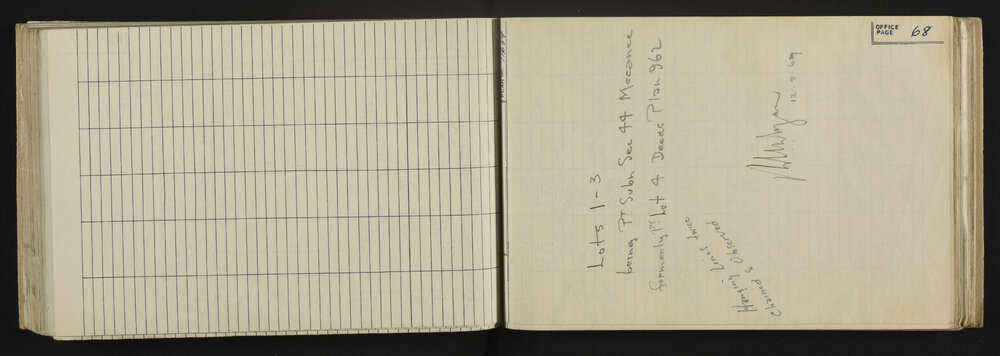 OFFICE
PAGE 68
Lots 1 - 3
being Pt Subn Sec 44 Meeanee
formerly Pt Lot 4 Deeds Plan 962
Hanging Lines twice
Chained & Observed
12.9.69